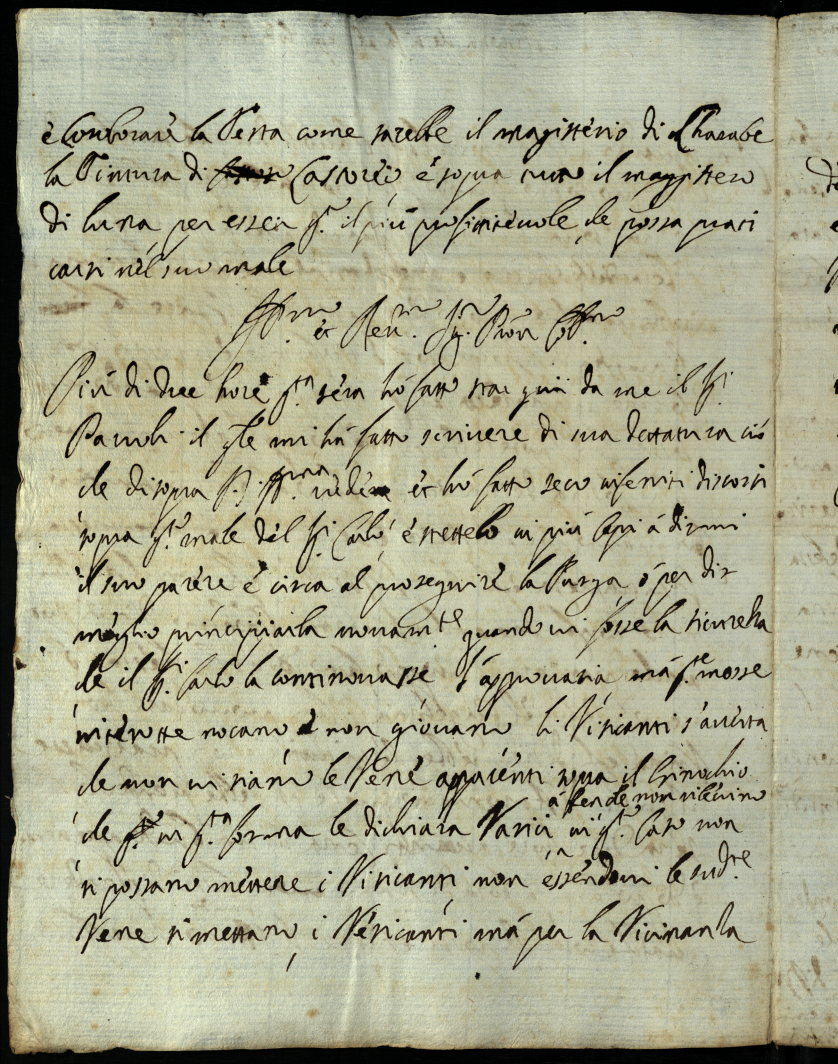 è Corroborare la Testa come sarebbe il magisterio di Charabe
la Tintura di Castoreo è sopra tutto il magistero
di luna per esser q.to il più profittevole che possa prati
carsi nel suo male
Ill.mo et Rev.mo Sig.r Pron Col.mo
Più di due hore q.ta sera hò fatto star qui da me il S.r
il q.le mi hà fatto scrivere di sua dettatura ciò
che di sopra V.S. Ill.ma vede et hò fatto seco diversi discorsi
sopra q.to male del S.r Carlo, è ristretto in più Capi à dirmi
il suo parere è circa al proseguire la Purga, ò per dir
meglio principiarla novam.te quando vi fosse la sicurezza
che il S.r Carlo la continovasse l'approvaria mà q.te mosse
interrotte nocano è non giovano li Visicanti s'averta
che non vi siano le Vene apparenti sopra il Ginochio
à che non rilevino
che in q.ta forma le dichiara Varici in q.to caso non
si possano mettere i Visicanti, non essendovi le sud.te
Vene si mettano i Vesicanti mà per la Vicinanza